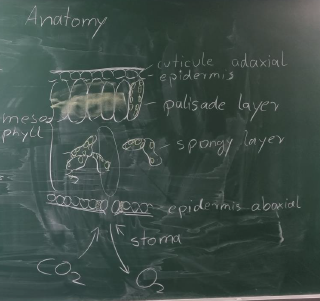 Anatomy
cuticule adaxial
epidermis
palisade layer
meso
phyll
spongy layer
epidermis abaxial
stoma
CO2
O2